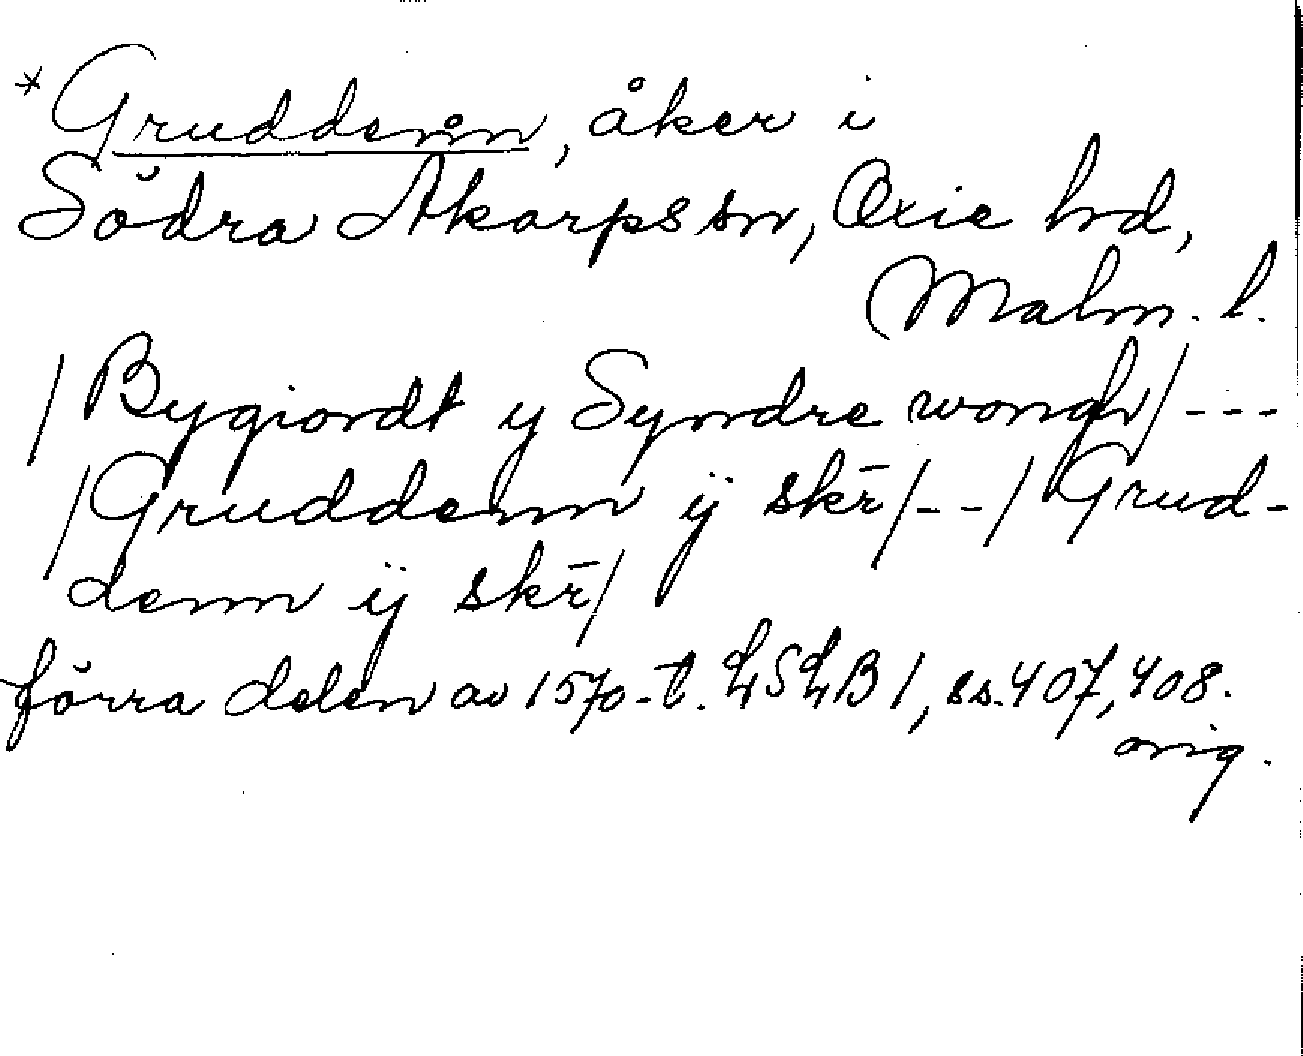 *Gruddenn, åker i
Södra Åkarps sn, Oxie hd,
Malm. l.
/Bygiordt y Syndre wongh/---
/Gruddenn ij skr̄/--/Grud-
denn ij skr̄/
förra delen av 1570-t. LSLB 1, ss. 407, 408.
orig.